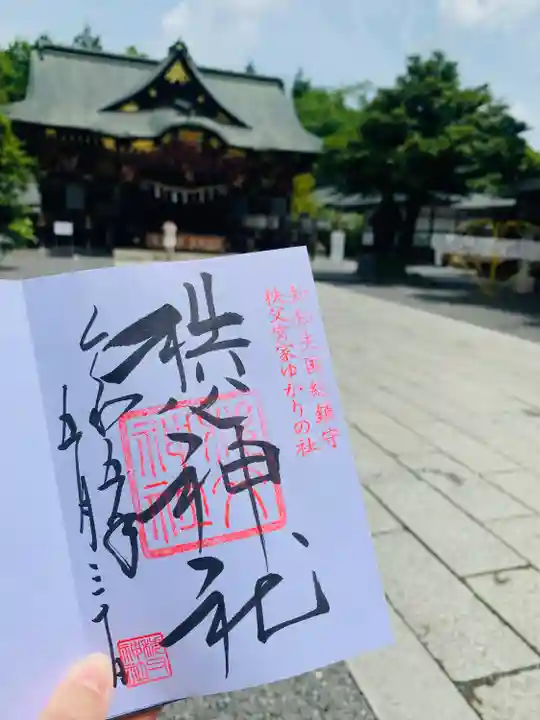 知知夫国総鎮守
秩父宮家ゆかりの社
秩父神社
令和五年
五月三十日
秩父神社